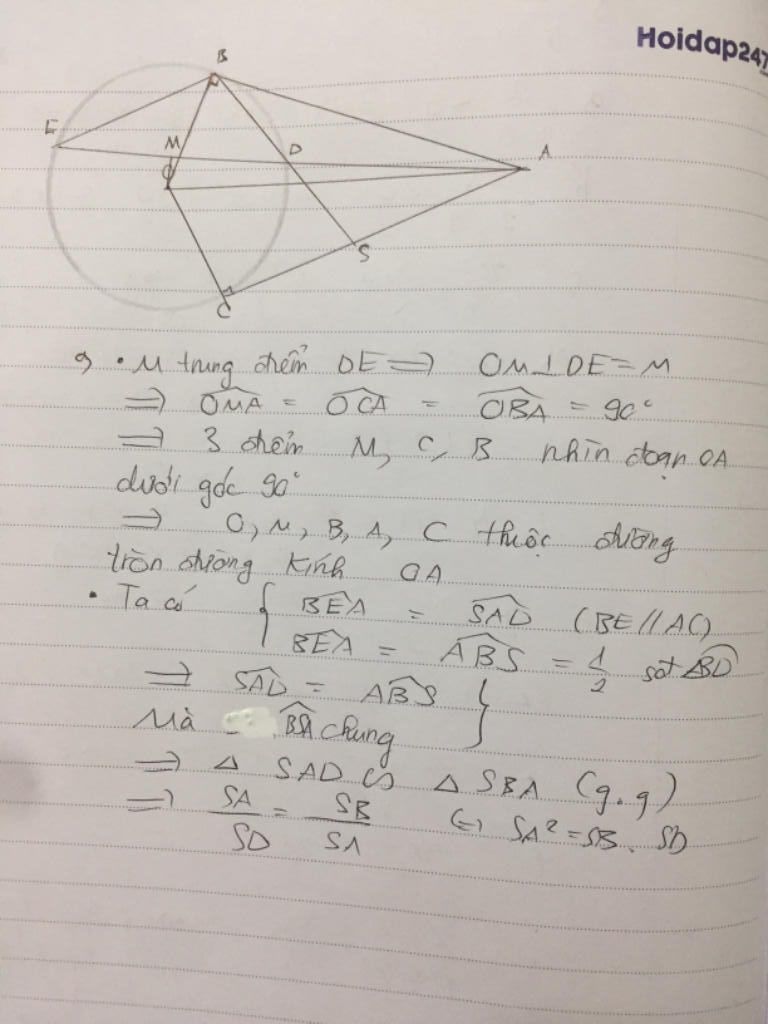 Hoidap247
B
E
M
D
A
O
S
C
a) • M trung điểm DE ⟹ OM⊥DE = M
⟹ \widehat{OMA} = \widehat{OCA} = \widehat{OBA} = 90°
⟹ 3 điểm M, C, B nhìn đoạn OA
dưới góc 90°
⟹ O, M, B, A, C thuộc đường
tròn đường kính OA
• Ta có { \widehat{BEA} = \widehat{SAD} (BE//AC)
\widehat{BEA} = \widehat{ABS} = 1/2 sđ \widehat{BD}
⟹ \widehat{SAD} = \widehat{ABS} }
Mà \widehat{BSA} chung
⟹ Δ SAD ∽ Δ SBA (g.g)
⟹ SA/SD = SB/SA (=) SA² = SB. SD